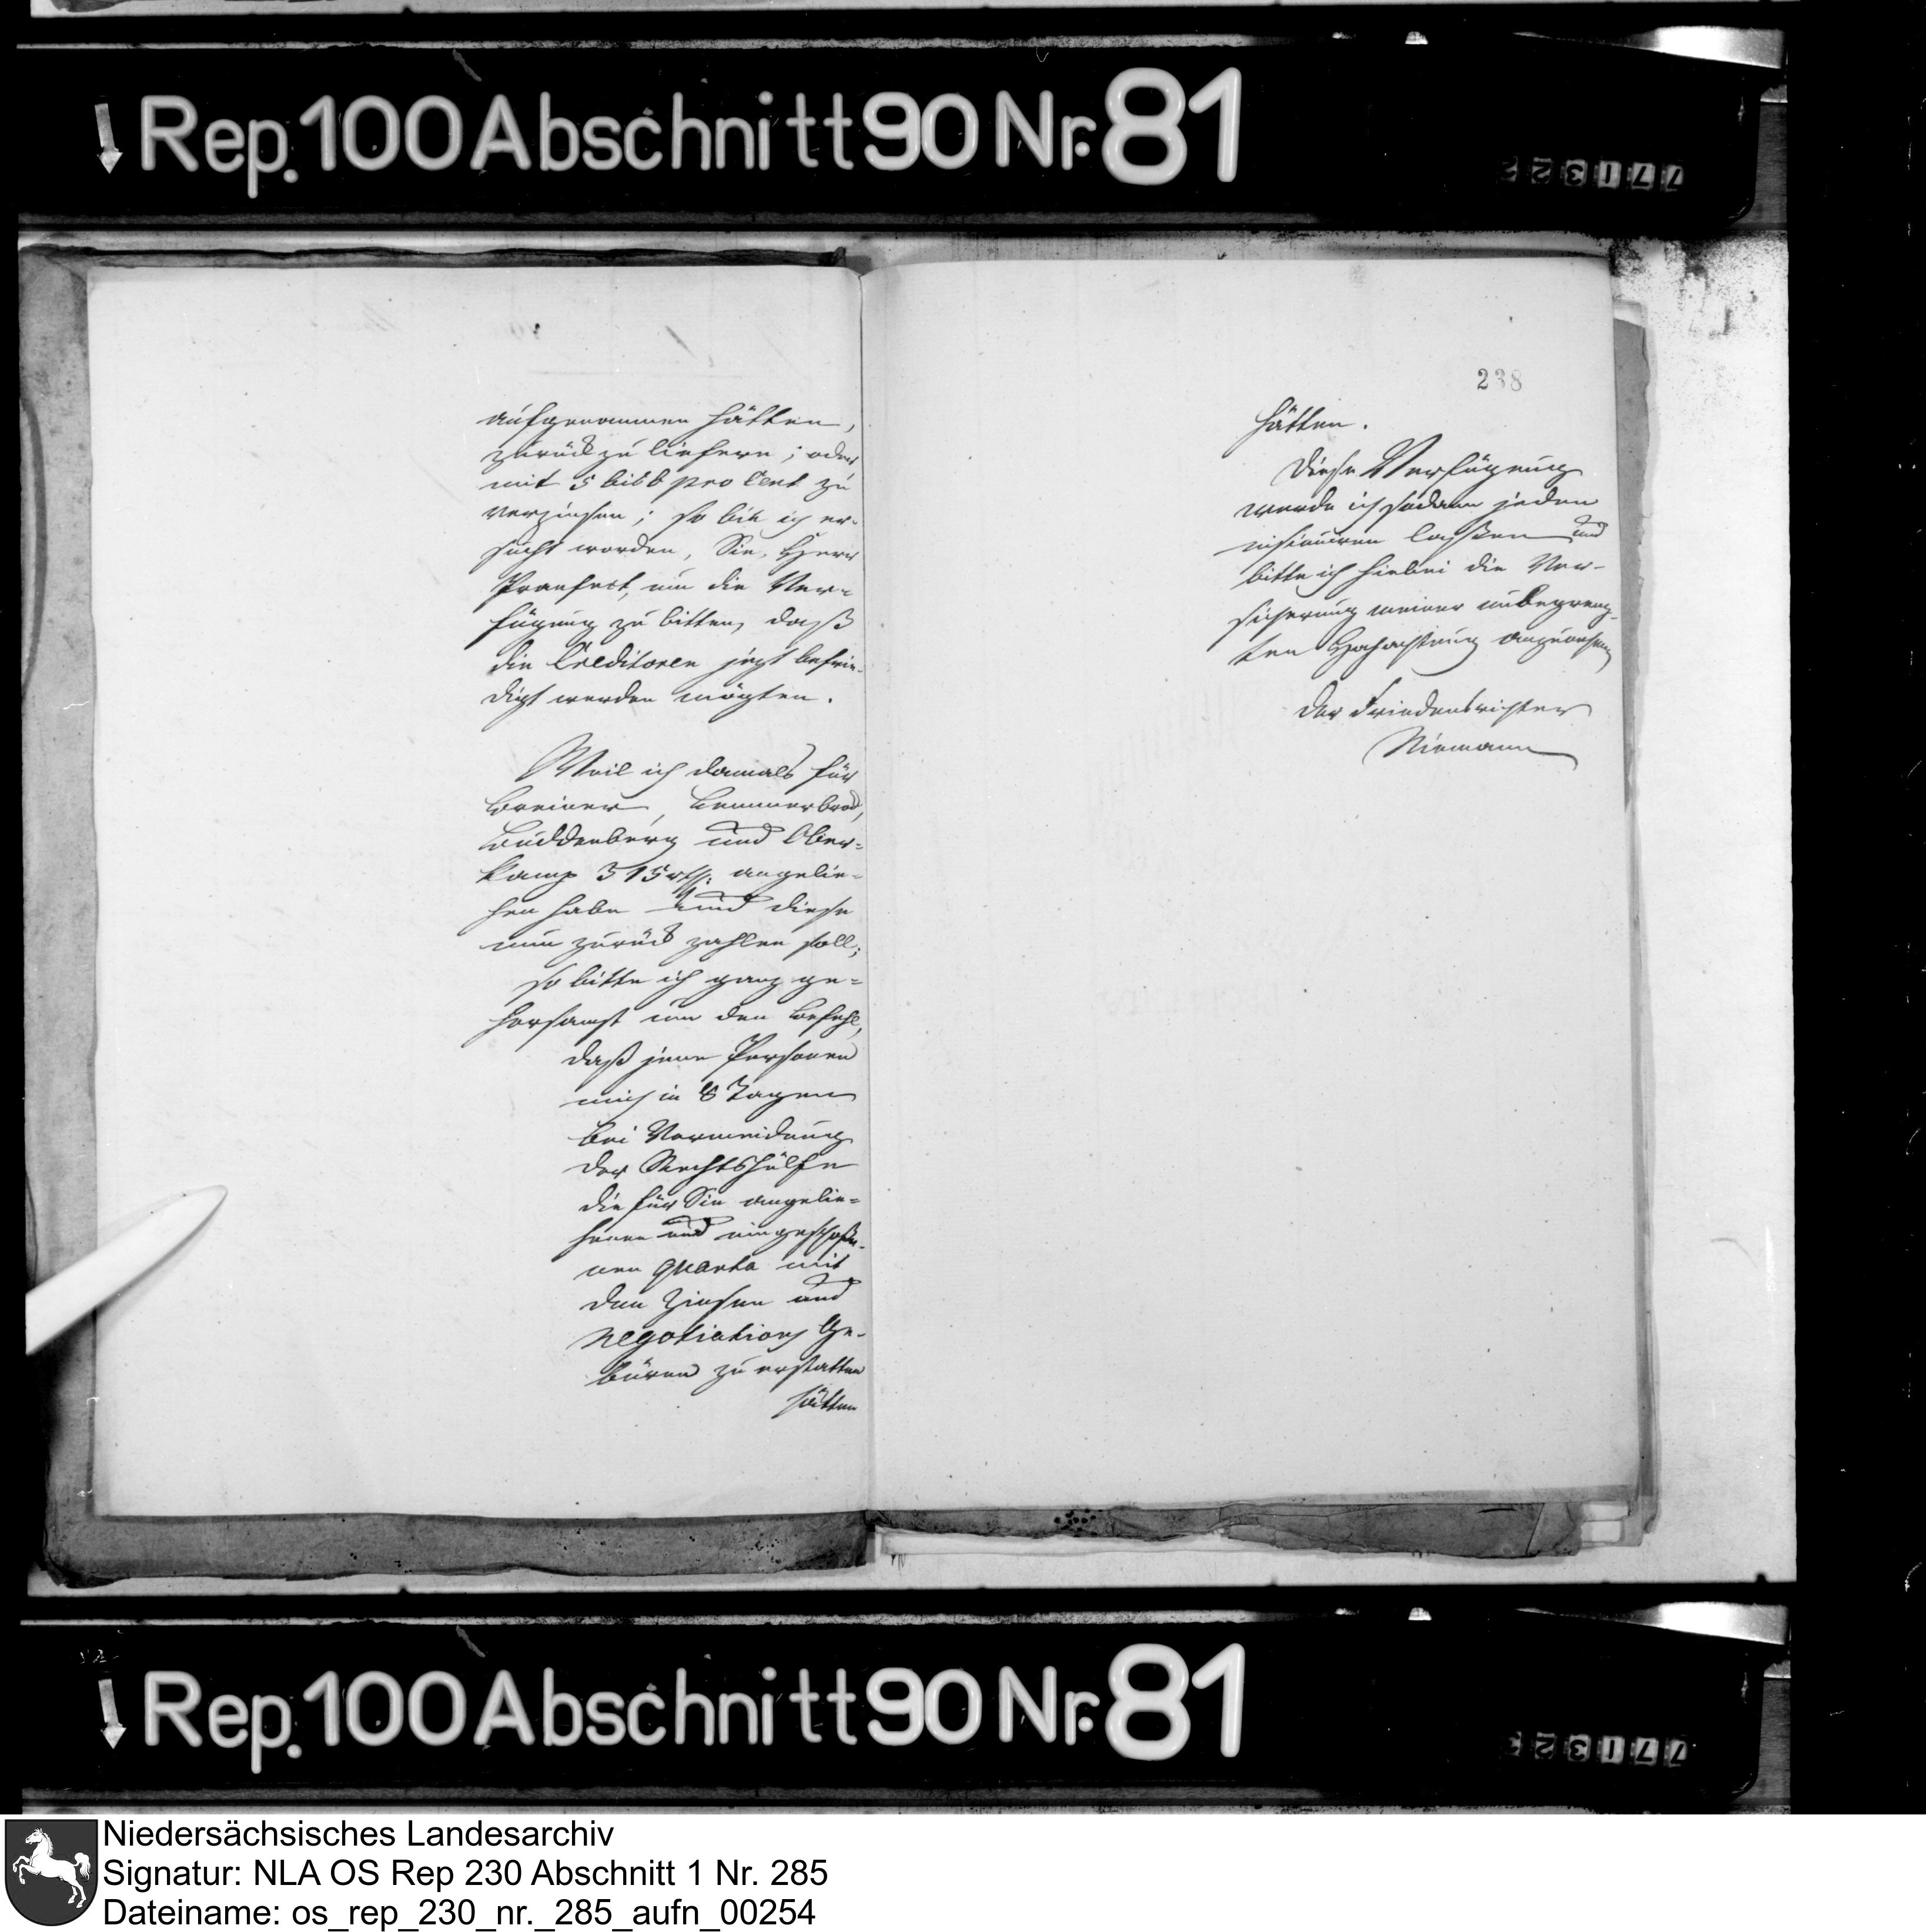 Rep. 100 Abschnitt 90 Nr. 81
771322
aufgenommen hätten,
zurück zu liefern; oder
mit 5 bis 6 pro Cent zu
verzinsen; so bin ich er-
sucht worden, Sie, Herr
Praefect, um die Ver-
fügung zu bitten, daß
die Creditoren jezt befrie-
digt werden mögten.
Weil ich damals für
Breiner,
Buddenberg und Ober-
kamp 315 rth: angelie-
hen habe und diese
nun zurück zahlen soll;
so bitte ich ganz ge-
horsamst um den Befehl,
daß jene Personen
mich in 8 Tagen
bei Vermeidung
der Rechtshülfe
die für Sie angelie-
henen und eingeschoße-
nen quanta mit
den Zinsen und
negotiations Ge-
büren zu erstatten
hätten
238
hätten.
Diese Verfügung
werde ich sodann jedem
insinuiren laßen und
bitte ich hiebei die Ver-
sicherung meiner unbegrenz-
ten Hochachtung
Der Friedensrichter
Niemann
Rep. 100 Abschnitt 90 Nr. 81
771323
Niedersächsisches Landesarchiv
Signatur: NLA OS Rep 230 Abschnitt 1 Nr. 285
Dateiname: os_rep_230_nr._285_aufn_00254